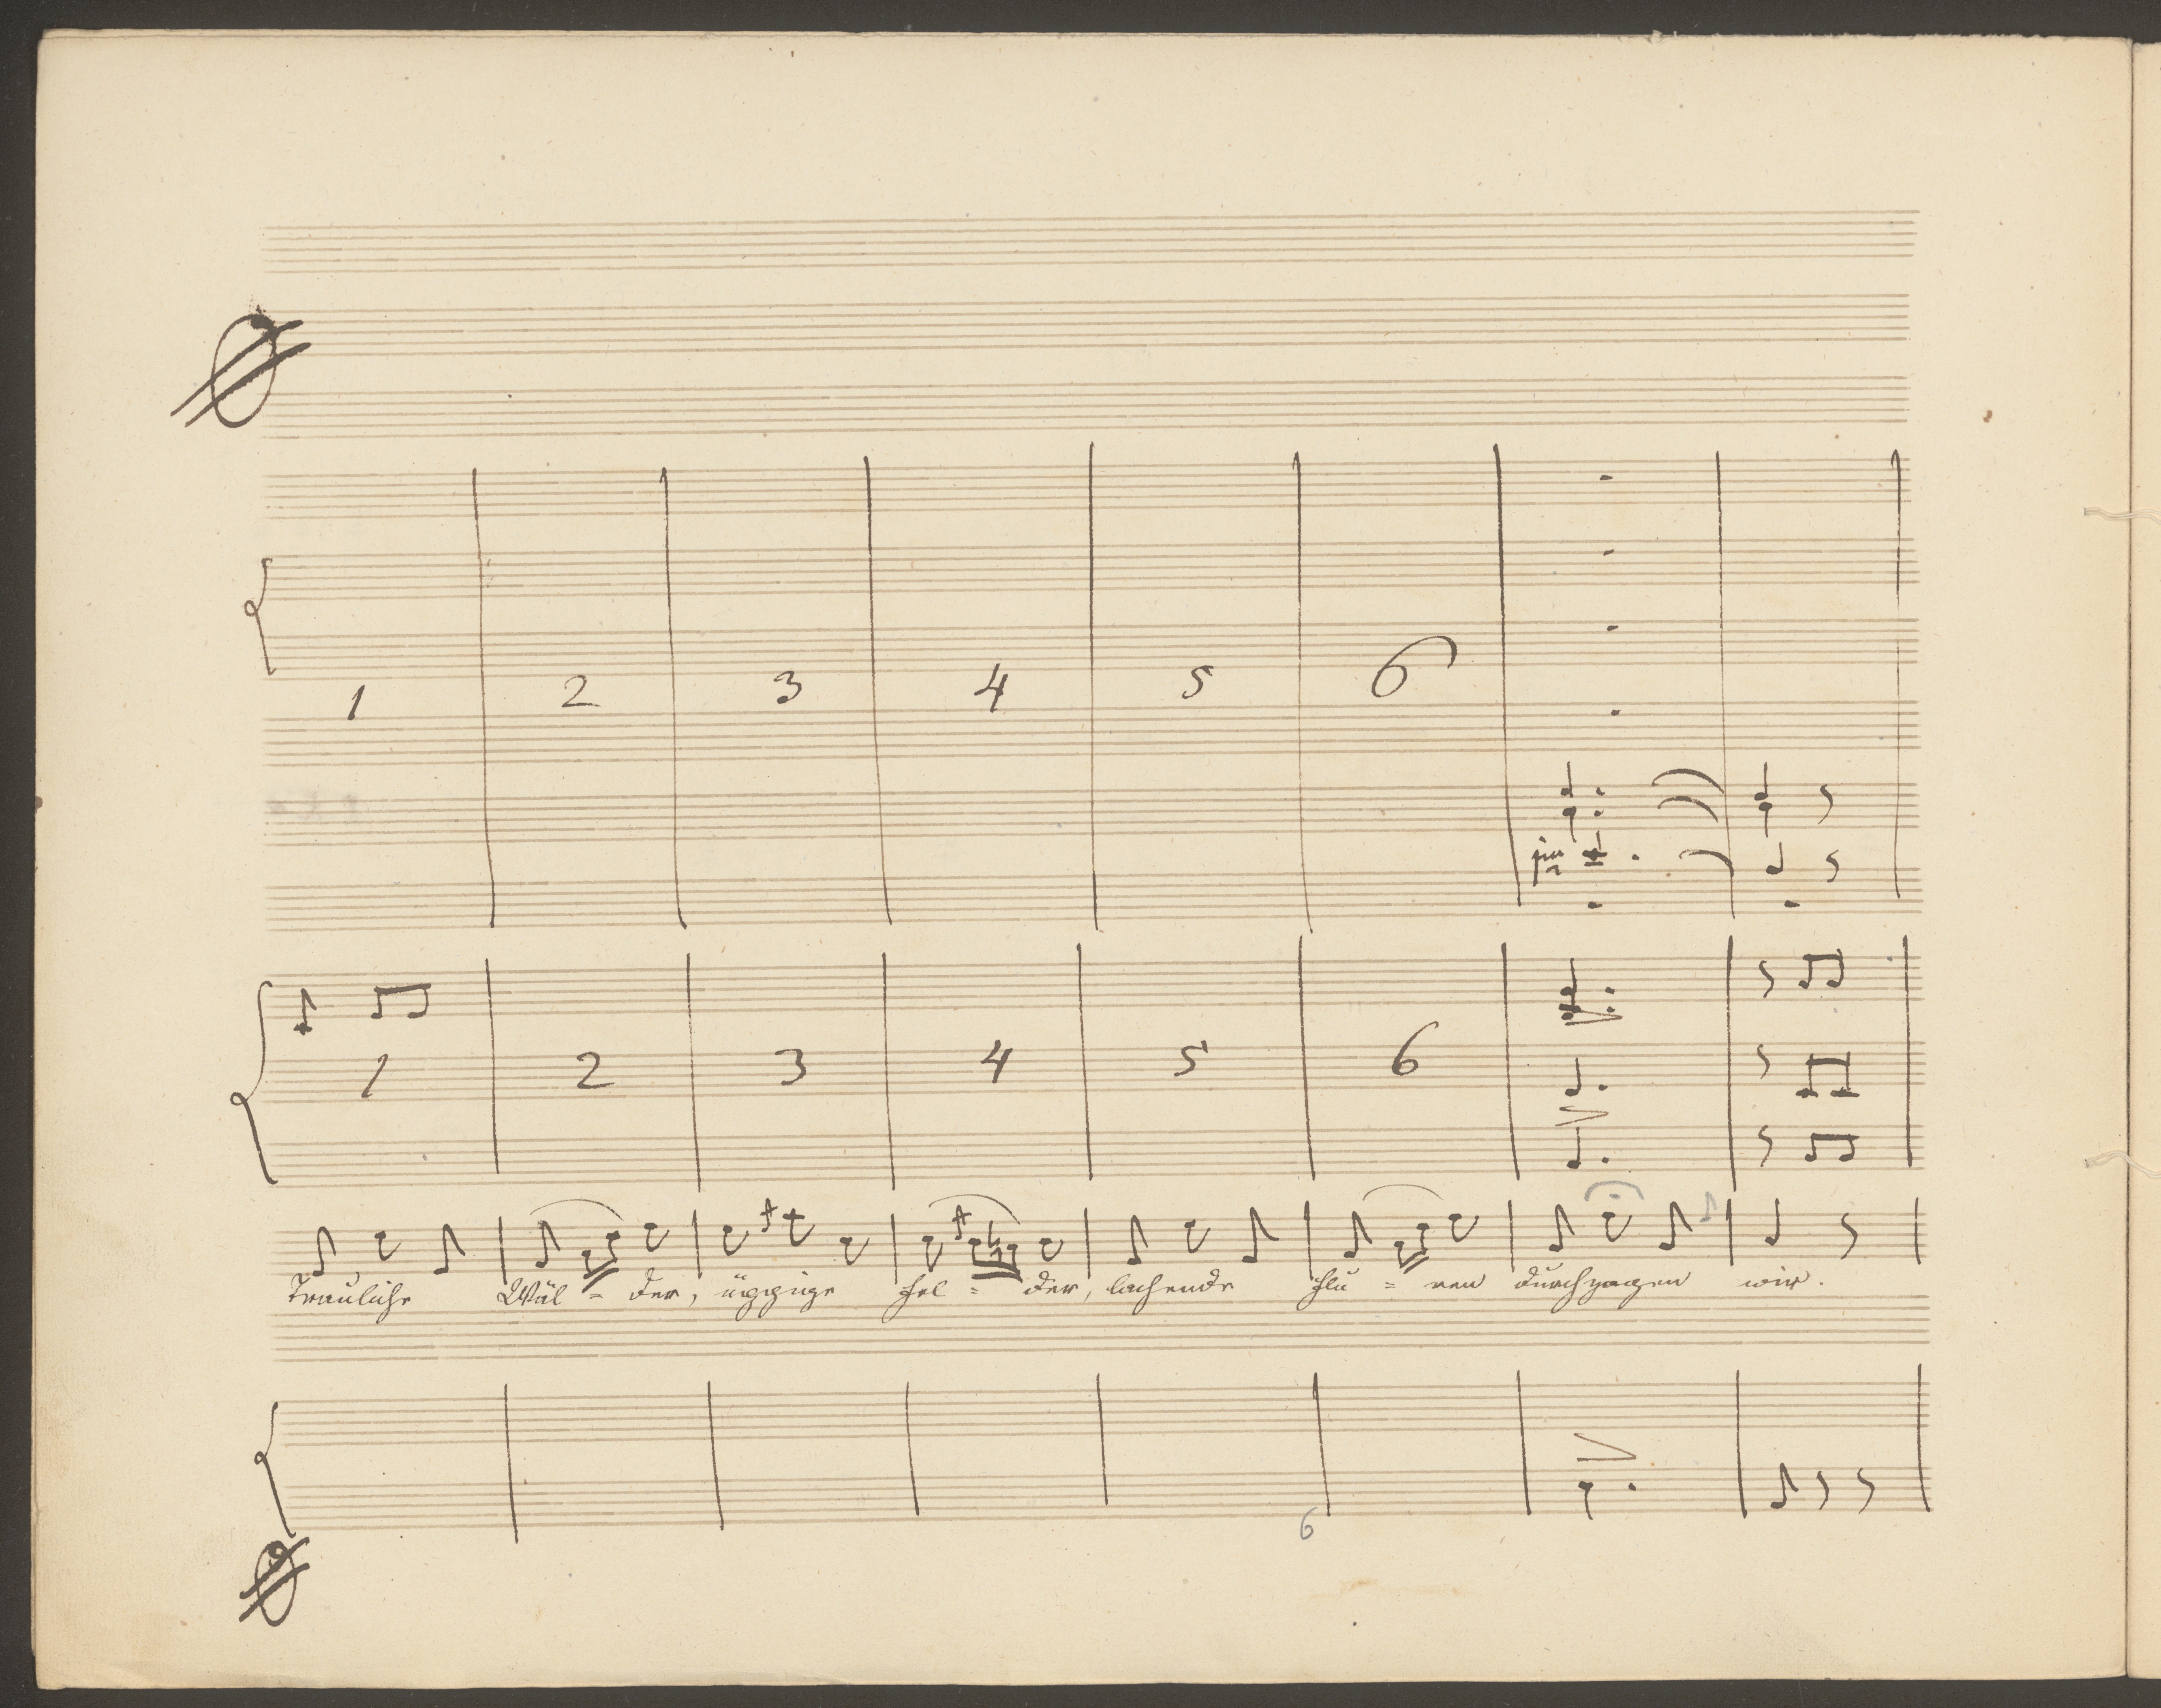 1 2 3 4 5 6
1 2 3 4 5 6
Trauliche Wäl = der, üppige Fel = der, lachende Flu = ren durchzogen wir.
6